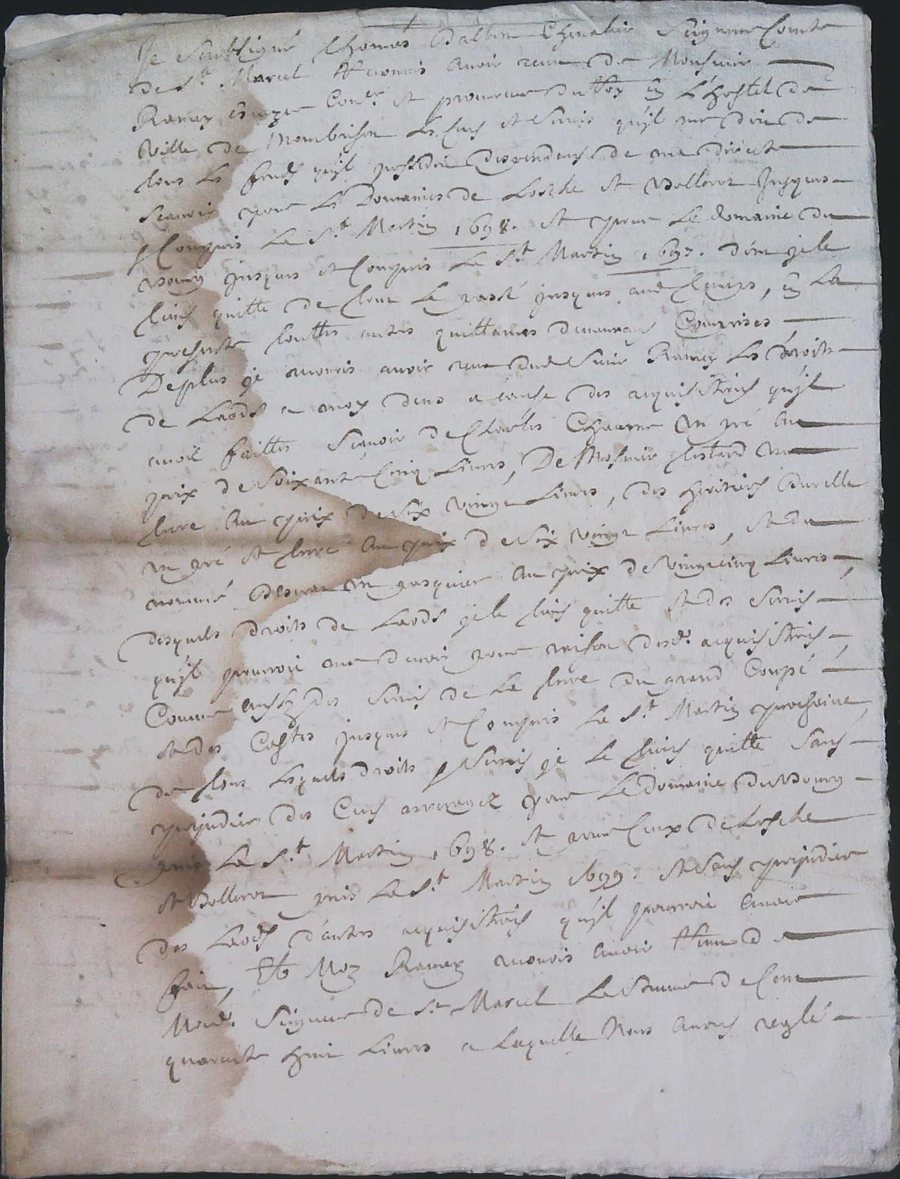 Je Soubsigné Thomas Dalbon Chevalier Seigneur Comte
de St. Marcel avouons avoir receu de Monsieur
Ramey Coner. et procureur du Roy en L'hostel de
ville de Montbrison Les Cens et Servis qu'jl me doit de
tous Les fonds qu'jl possede dependens de ma directe
Scavoir pour Les Domaines de Losche et Jusques
et Compris La St. Martin 1698. et pour Le domaine du
Bourg jusques et Compris La St. Martin 1697. dont je le
tiens quitte de tout Le passé jusques aud. temps, en La
presente touttes autres quittances demeurans Comprises
De plus je avouons avoir receu dud. Sieur Ramey Les droits
de Laods a moy deus a cause des acquisitions qu'jl
avoit faittes Scavoir de Charles Chaume un pré au
prix de Soixante Cinq Livres, De Monsieur un
terre au prix de Six vingt Livres, des heritiers
un pré et terre au prix de Six vingt Livres, et du
nommé un pasquier au prix de Vingt cinq Livres
desquels droits de Laods je le tiens quitte et des Servis
qu'jl pourroit me devoir pour raison desd. acquisitions
Comme aussy des Servis de La terre du grand Coupé
et des jusques et Compris La St. Martin prochaine
de tous Lesquels droits et Servis je Le tiens quitte Sans
prejudice des Cens arreragés pour Le domaine du Bourg
puis La St. Martin 1698. et pour Ceux de Losche
et puis La St. Martin 1699. et Sans prejudice
des Laods d'autres acquisitions qu'jl pourroit avoir
fait, Et Moy Ramey avouons avoir de
Mond. Seigneur de St. Marcel La Somme de Cent
quarante huit Livres a Laquelle Nous avons reglé